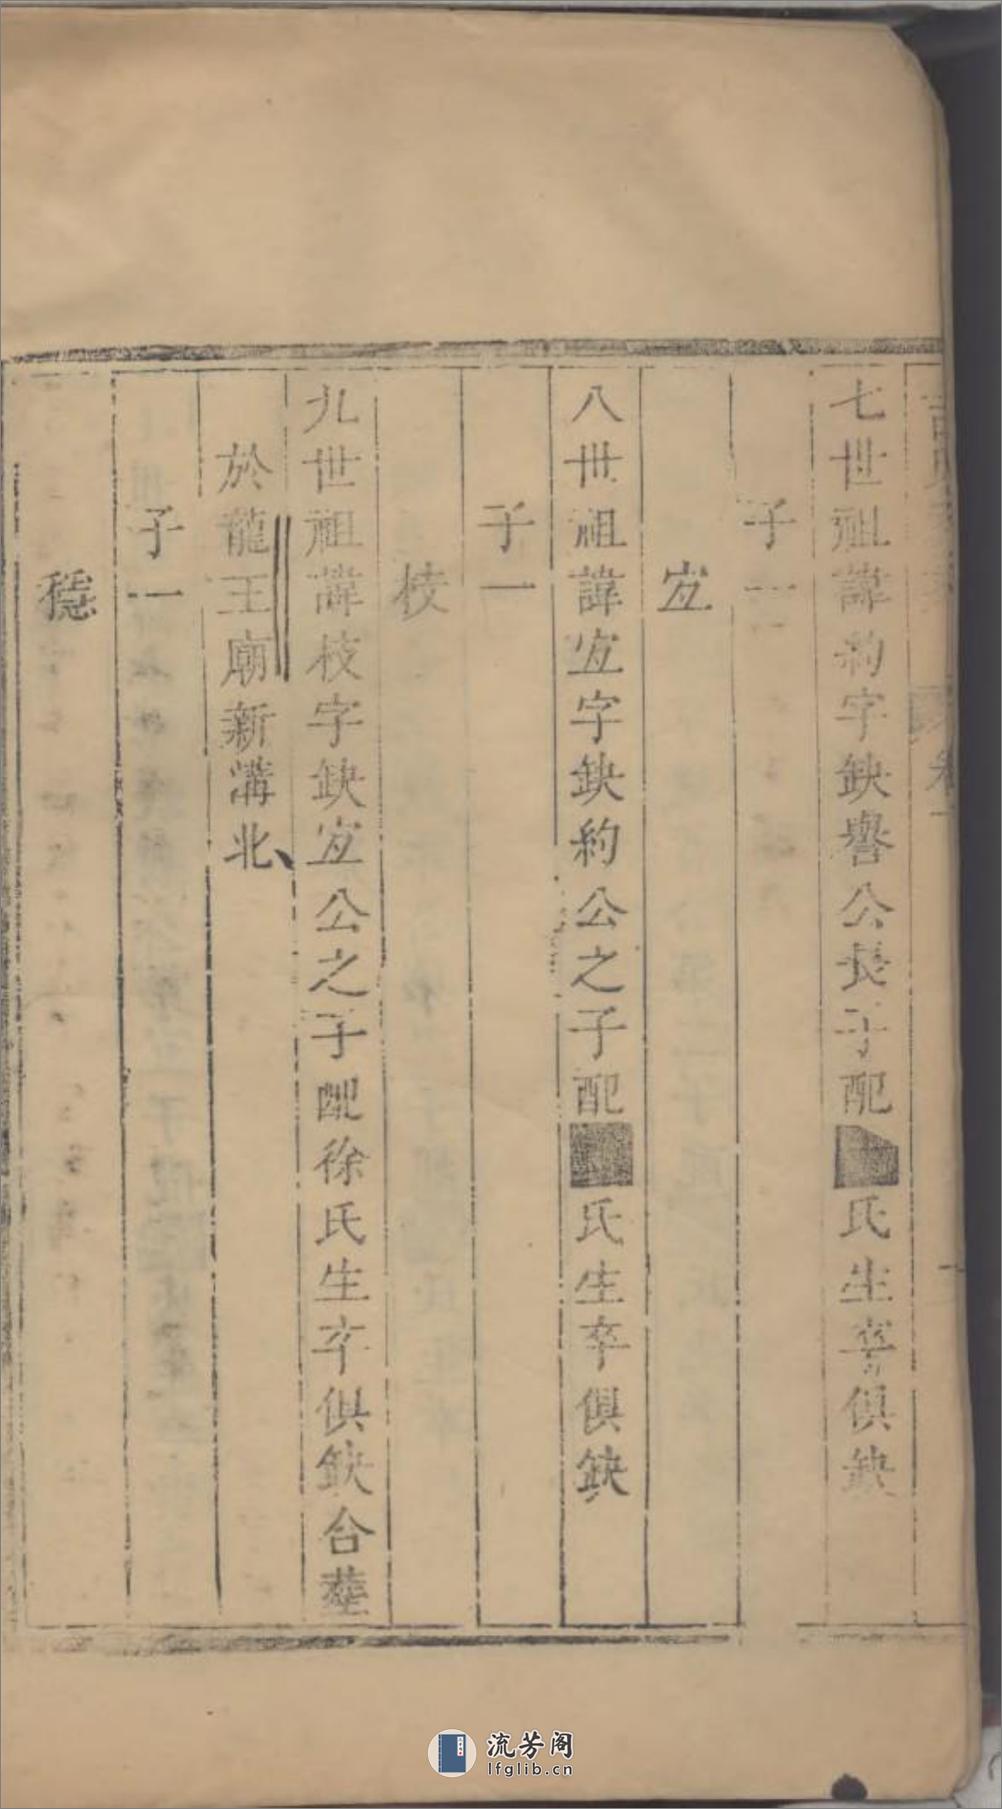 七世祖諱約字缺譽公長子配■氏生卒俱缺
子一
宐
八世祖諱宐字缺約公之子配■氏生卒俱缺
子一
枝
九世祖諱枝字缺宐公之子配徐氏生卒俱缺合塟
於龍王廟新溝北
子一
穩
流芳阁
lfglib.cn